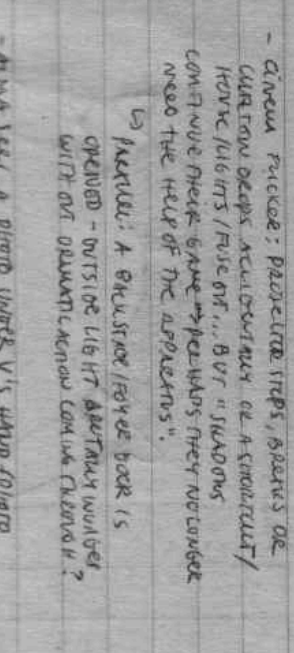 - CINEMA FUCKER: PROJECTOR STOPS, BREAKS OR
CURTAIN DROPS ACCIDENTALLY OR A SHORTCUT/
HOUSE/LIGHTS/FUSE OUT... BUT "SHADOWS
CONTINUE THEIR GAME" → PERHAPS THEY NO LONGER
NEED THE HELP OF THE APPARATUS".
↳ PARALLEL: A BACKSTAGE/FOYER DOOR IS
OPENED - OUTSIDE LIGHT
WITHOUT COMING THROUGH?
A PHOTO UNDER V'S HAND